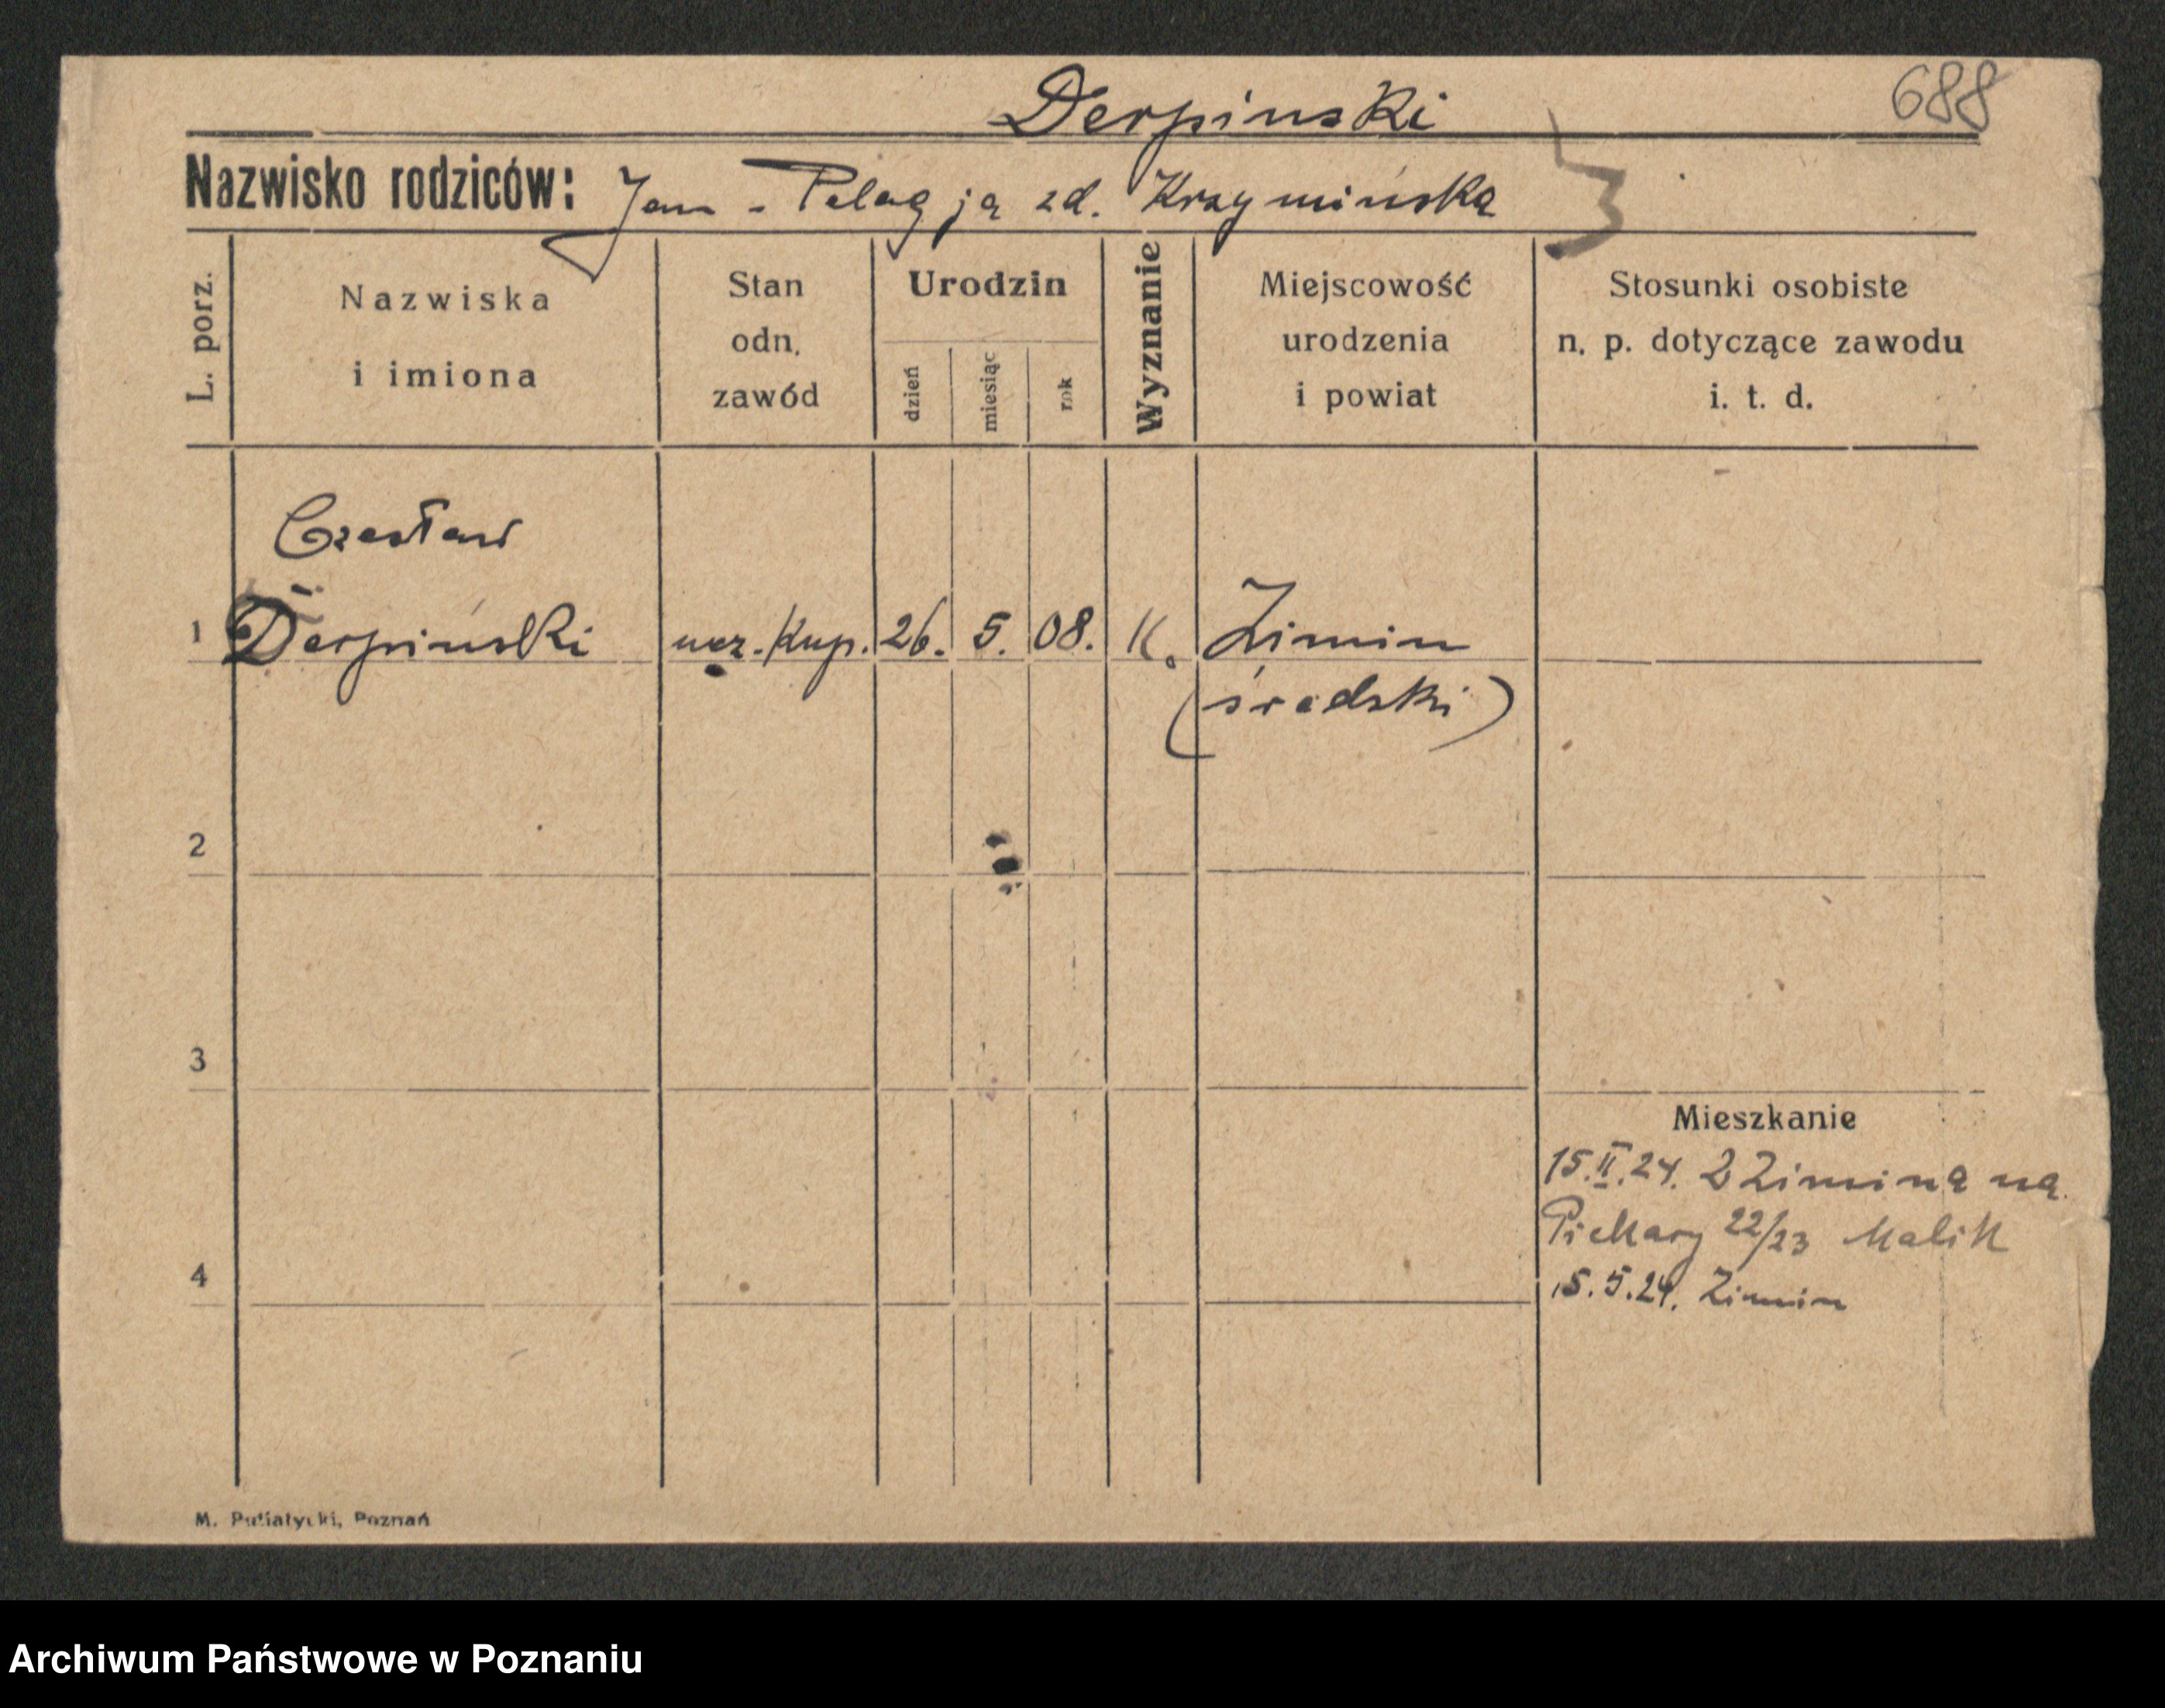 688
Derpinski
Nazwisko rodziców: Jan - Pelagja zd. Krzymińska
L. porz.
Nazwiska i imiona
Stan odn. zawód
Urodzin
dzień
miesiąc
rok
Wyznanie
Miejscowość urodzenia i powiat
Stosunki osobiste n. p. dotyczące zawodu i. t. d.
Czesław
1 Derpiński ucz. kup. 26. 5. 08. K. Zimin
(średski)
2
3
Mieszkanie
15.II.24. Z Zimina na
Piekary 22/23 Malik
4
15.5.24. Zimin
M. Putiatycki, Poznań
Archiwum Państwowe w Poznaniu